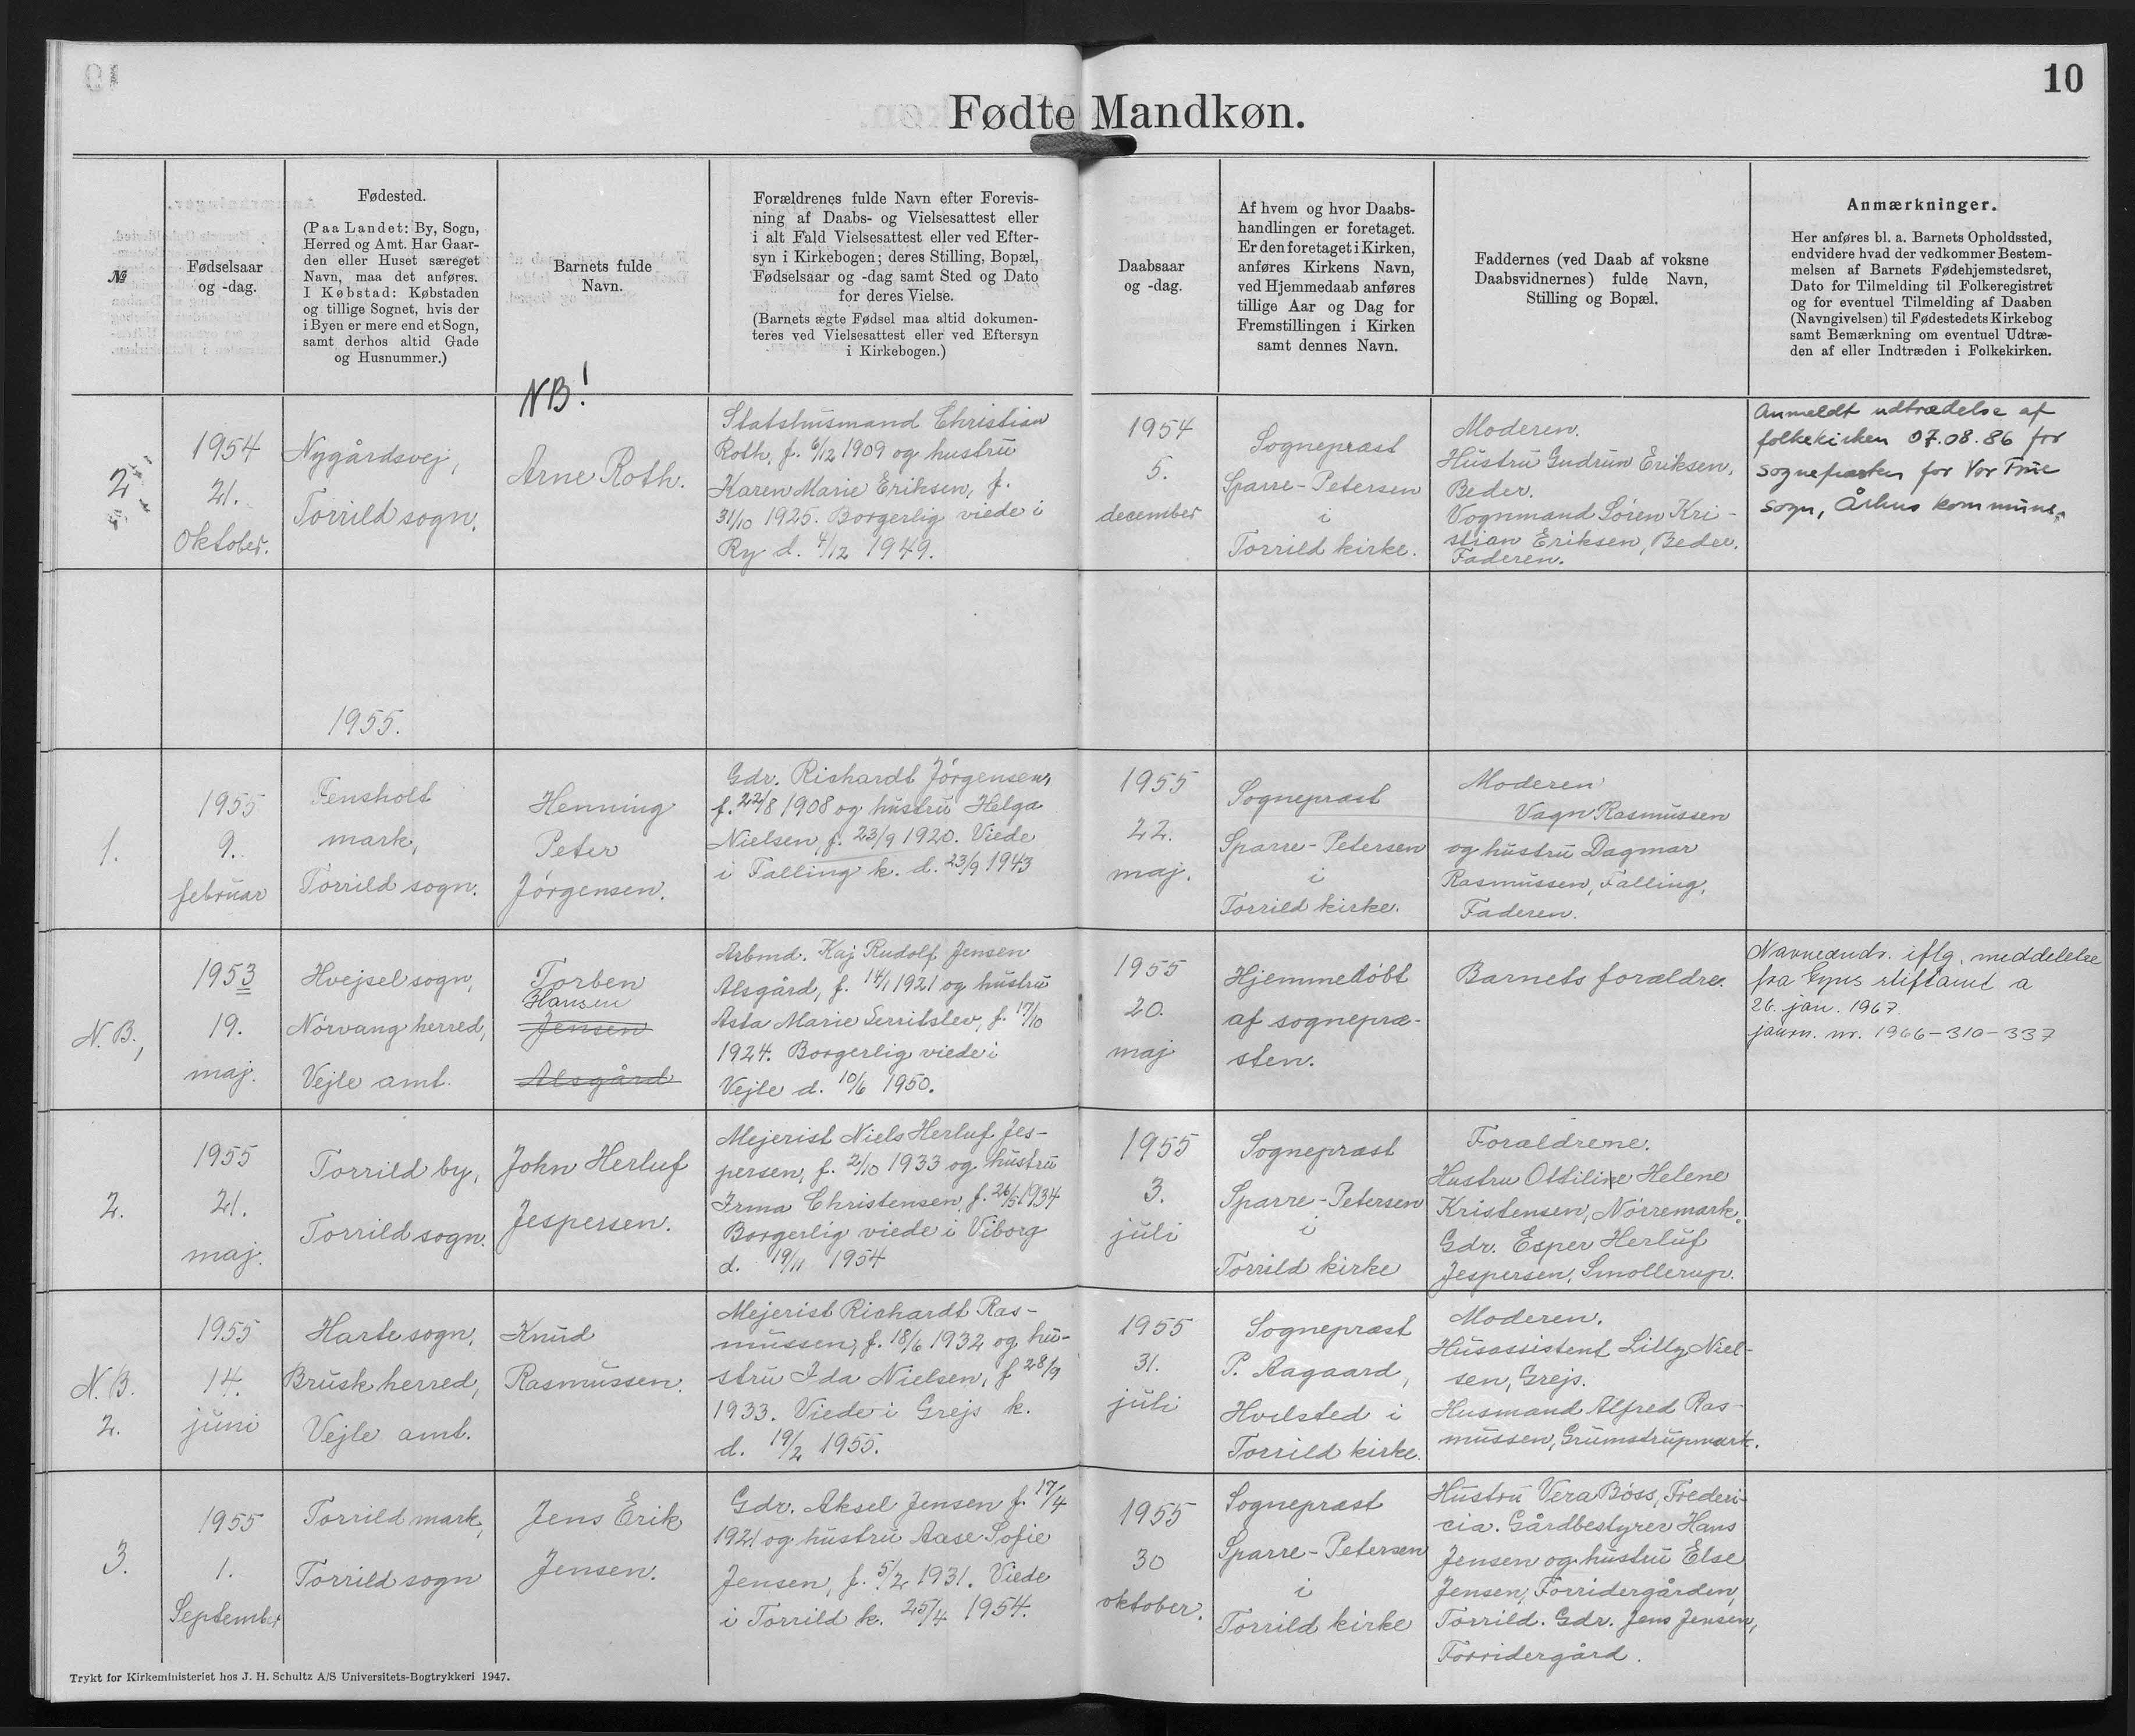 10
Fødte Mandkøn.
№
Fødselsaar
og -dag.
Fødested.
(Paa Landet: By, Sogn,
Herred og Amt. Har Gaar-
den eller Huset særeget
Navn, maa det anføres.
I Købstad: Købstaden
og tillige Sognet, hvis der
i Byen er mere end et Sogn,
samt derhos altid Gade
og Husnummer.)
Barnets fulde
Navn.
Forældrenes fulde Navn efter Forevis-
ning af Daabs- og Vielsesattest eller
i alt Fald Vielsesattest eller ved Efter-
syn i Kirkebogen; deres Stilling, Bopæl,
Fødselsaar og -dag samt Sted og Dato
for deres Vielse.
(Barnets ægte Fødsel maa altid dokumen-
teres ved Vielsesattest eller ved Eftersyn
i Kirkebogen.)
Daabsaar
og -dag.
Af hvem og hvor Daabs-
handlingen er foretaget.
Er den foretaget i Kirken,
anføres Kirkens Navn,
ved Hjemmedaab anføres
tillige Aar og Dag for
Fremstillingen i Kirken
samt dennes Navn.
Faddernes (ved Daab af voksne
Daabsvidnernes) fulde Navn,
Stilling og Bopæl.
Anmærkninger.
Her anføres bl. a. Barnets Opholdssted,
endvidere hvad der vedkommer Bestem-
melsen af Barnets Fødehjemstedsret,
Dato for Tilmelding til Folkeregistret
og for eventuel Tilmelding af Daaben
(Navngivelsen) til Fødestedets Kirkebog
samt Bemærkning om eventuel Udtræ-
den af eller Indtræden i Folkekirken.
NB!
2
1954
21.
Oktober.
Nygårdsvej,
Torrild sogn.
Arne Roth.
Statshusmand Christian
Roth, f. 6/12 1909 og hustru
Karen Marie Eriksen, f.
31/10 1925. Borgerlig viede i
Ry d. 4/12 1949.
1954
5.
december
Sognepræst
Sparre-Petersen
i
Torrild kirke.
Moderen.
Hustru Gudrun Eriksen,
Beder.
Vognmand Søren Kri-
stian Eriksen, Beder.
Faderen.
Anmeldt udtrædelse af
folkekirken 07.08.86 for
sognepræsten for Vor Frue
sogn, Århus kommune.
1955.
1.
1955
9.
februar
Fensholt
mark,
Torrild sogn.
Henning
Peter
Jørgensen.
Gdr. Richardt Jørgensen,
f. 22/8 1908 og hustru Helga
Nielsen, f. 23/9 1920. Viede
i Falling k. d. 23/9 1943
1955
22.
maj.
Sognepræst
Sparre-Petersen
i
Torrild kirke.
Moderen
Vagn Rasmussen
og hustru Dagmar
Rasmussen, Falling.
Faderen.
N.B.,
1953
19.
maj.
Hvejsel sogn,
Nørvang herred,
Vejle amt.
Torben
Hansen
Jensen
Alsgård
Arbmd. Kaj Rudolf Jensen
Alsgård, f. 14/1 1921 og hustru
Asta Marie Serritslev, f. 17/10
1924. Borgerlig viede i
Vejle d. 10/6 1950.
1955
20.
maj
Hjemmedøbt
af sognepræ-
sten.
Barnets forældre.
Navneændr. iflg. meddelelse
fra Fyns stiftamt a
26. jan. 1967.
journ. nr. 1966-310-337
2.
1955
21.
maj.
Torrild by,
Torrild sogn.
John Herluf
Jespersen.
Mejerist Niels Herluf Jes-
persen, f. 2/10 1933 og hustru
Irma Christensen, f. 26/5 1934
Borgerlig viede i Viborg
d. 19/11 1954
1955
3.
juli
Sognepræst
Sparre-Petersen
i
Torrild kirke
Forældrene.
Hustru Ottiline Helene
Kristensen, Nørremark.
Gdr. Esper Herluf
Jespersen, Smollerup.
N.B.
2.
1955
14.
juni
Harte sogn,
Brusk herred,
Vejle amt.
Knud
Rasmussen.
Mejerist Richardt Ras-
mussen, f. 18/6 1932 og hu-
stru Ida Nielsen, f 28/9
1933. Viede i Grejs k.
d. 19/2 1955.
1955
31.
juli
Sognepræst
P. Aagaard,
Hvilsted i
Torrild kirke.
Moderen.
Husassistent Lilly Niel-
sen, Grejs.
Husmand Alfred Ras-
mussen, Grumstrupmark.
3.
1955
1.
September
Torrild mark,
Torrild sogn
Jens Erik
Jensen.
Gdr. Aksel Jensen f. 17/4
1921 og hustru Aase Sofie
Jensen, f. 5/2 1931. Viede
i Torrild k. 25/4 1954.
1955
30
oktober.
Sognepræst
Sparre-Petersen
i
Torrild kirke
Hustru Vera Böss, Frederi-
cia. Gårdbestyrer Hans
Jensen og hustru Else
Jensen, Torridergården,
Torrild. Gdr. Jens Jensen,
Torridergård.
Trykt for Kirkeministeriet hos J. H. Schultz A/S Universitets-Bogtrykkeri 1947.